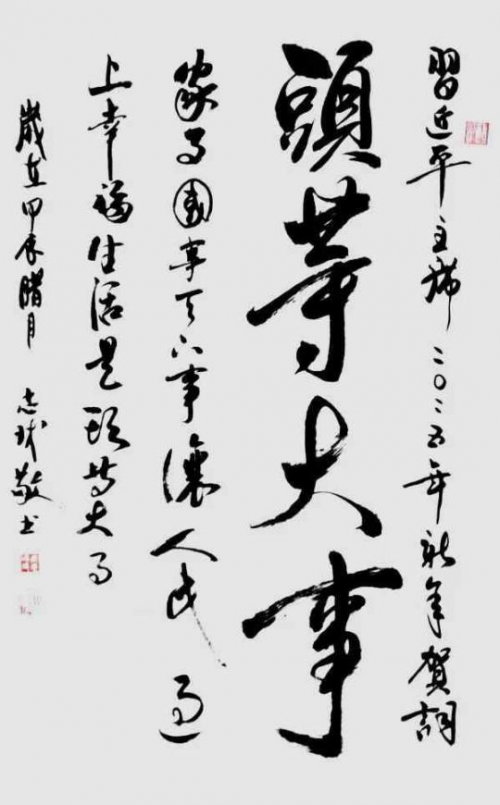 習近平主席二〇二五年新年賀詞
頭等大事
家事國事天下事讓人民過
上幸福生活是頭等大事
歲在甲辰臘月 志成敬书